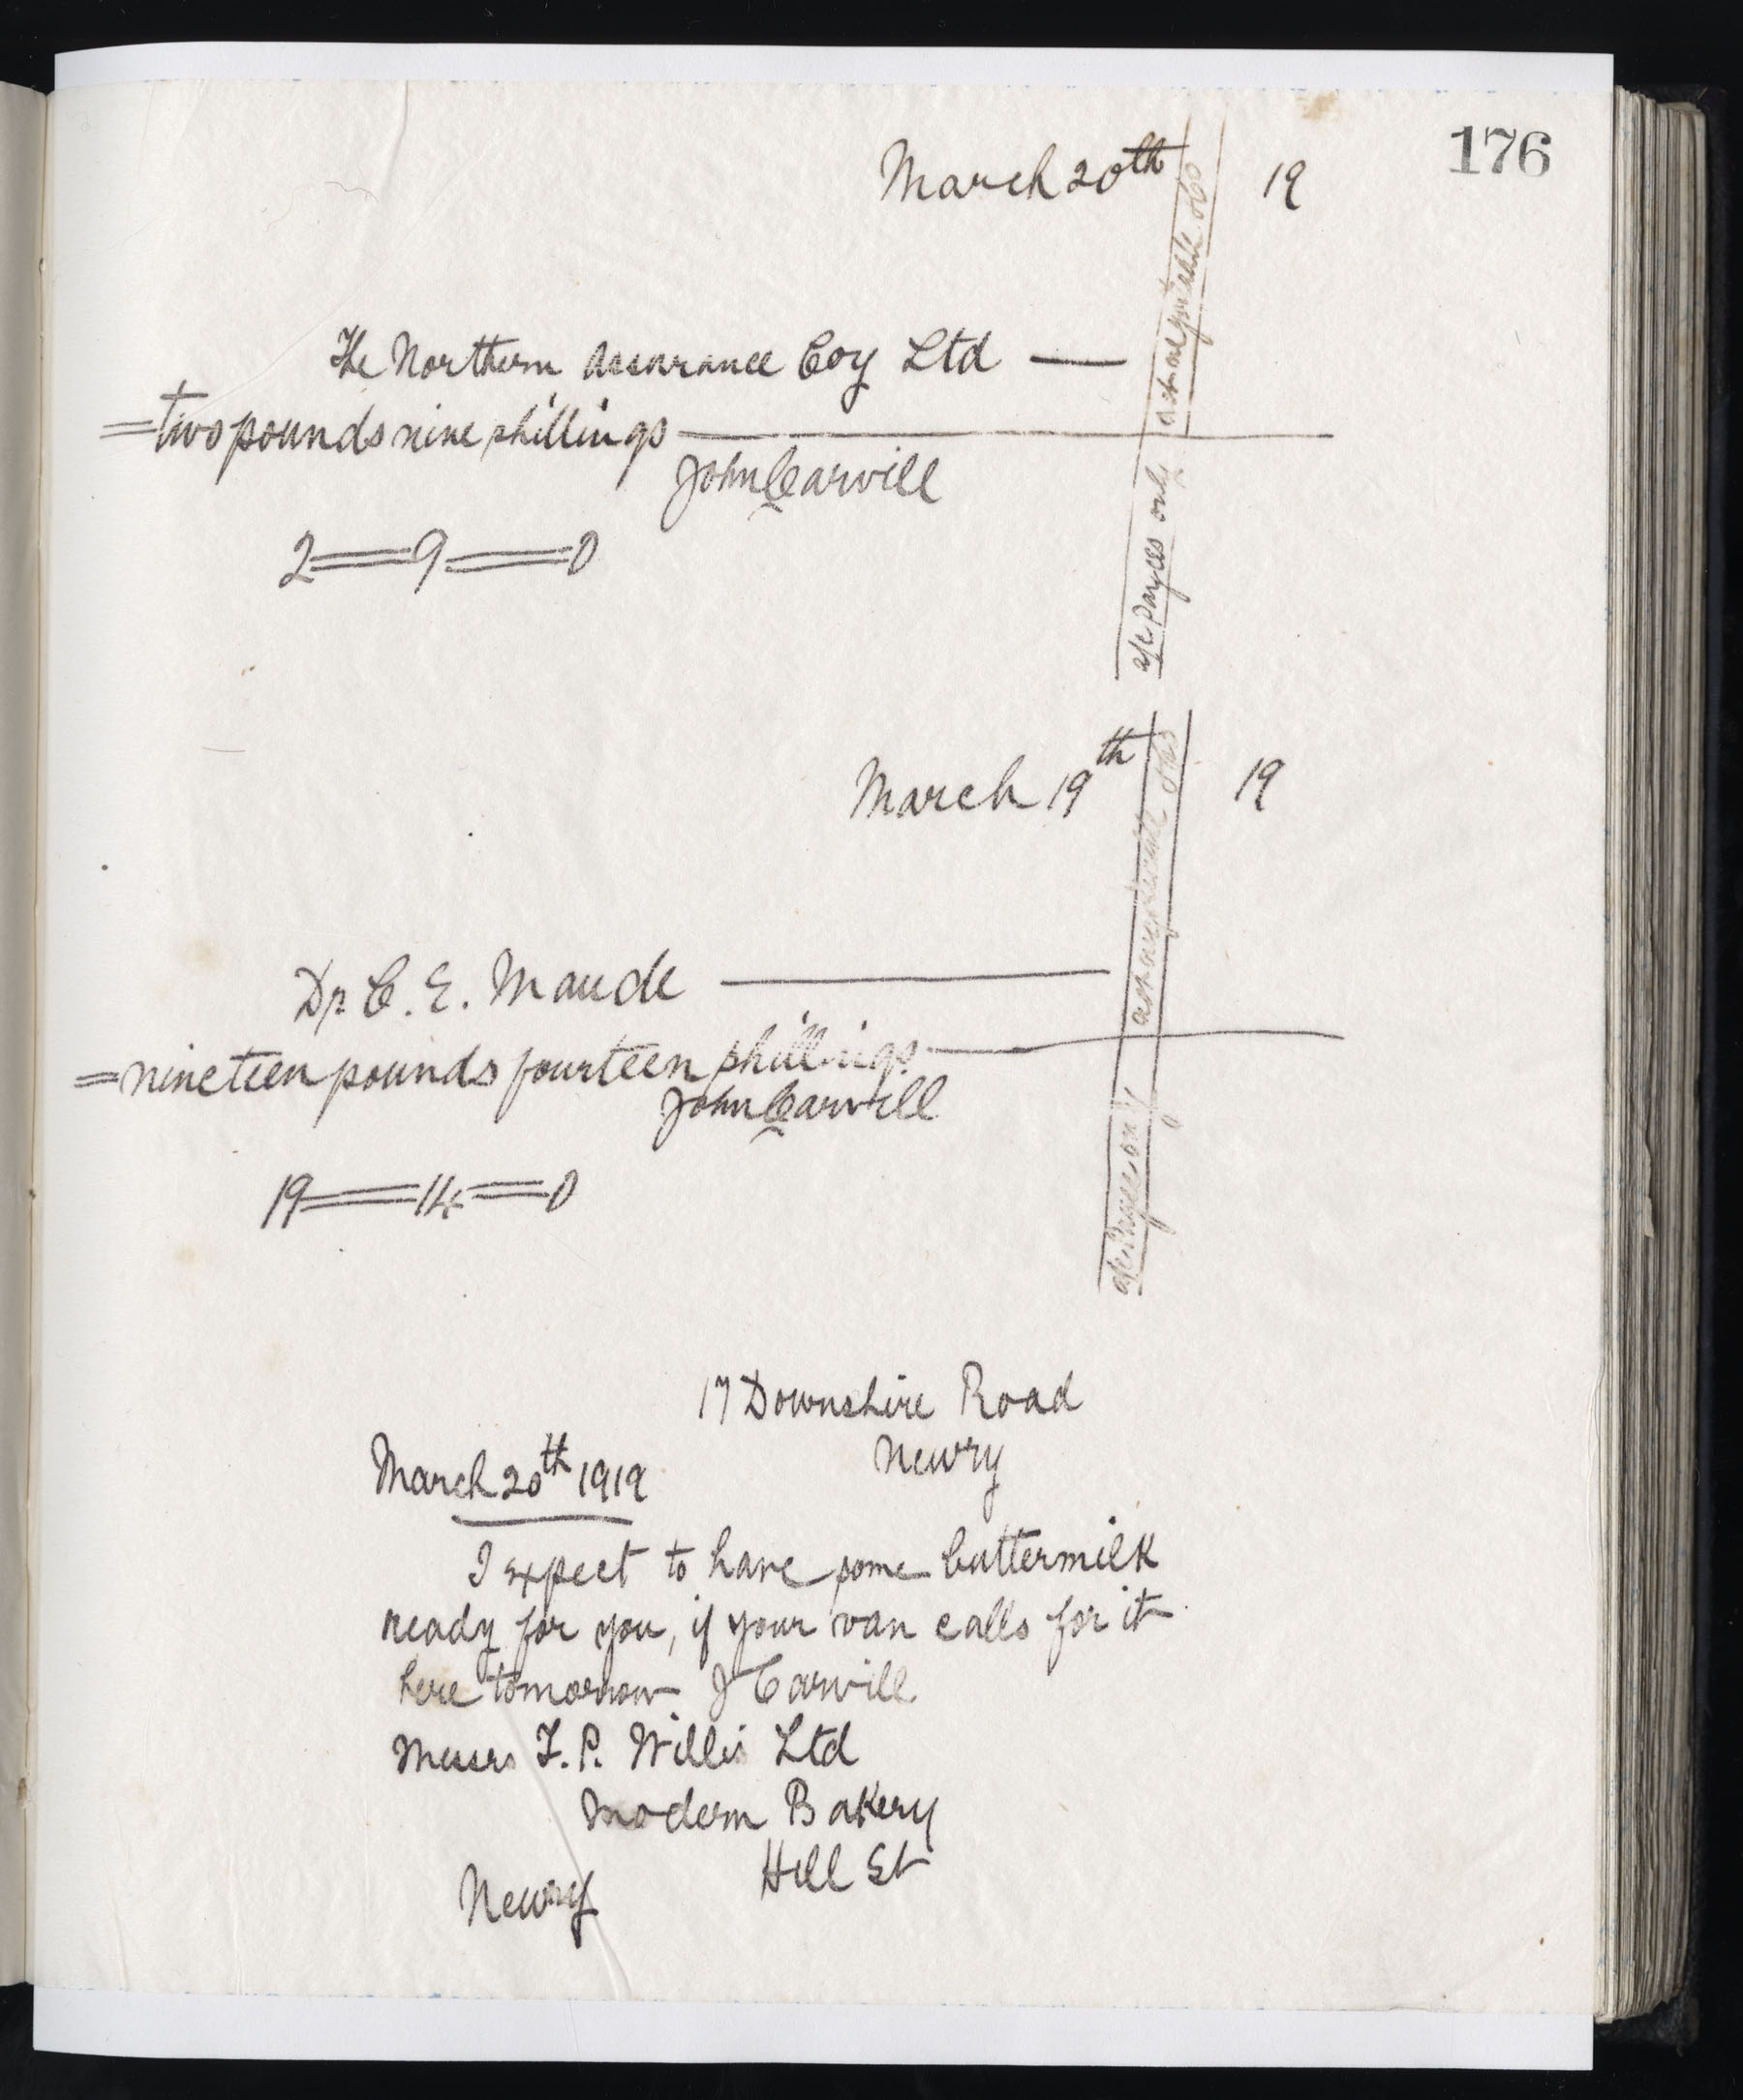 176
March 20th 19
The Northern Assurance Coy Ltd —
=two pounds nine shillings —
John Carvill
2=9=0
a/c payees only
not negotiable
March 19th 19
Dr C. E. Maude —
=nineteen pounds fourteen shillings —
John Carvill
19=14=0
a/c payee only
17 Downshire Road
Newry
March 20th 1919
I expect to have some buttermilk
ready for you, if your van calls for it
here tomorrow J Carvill
Messrs F. P. Willis Ltd
Modern Bakery
Hill St
Newry